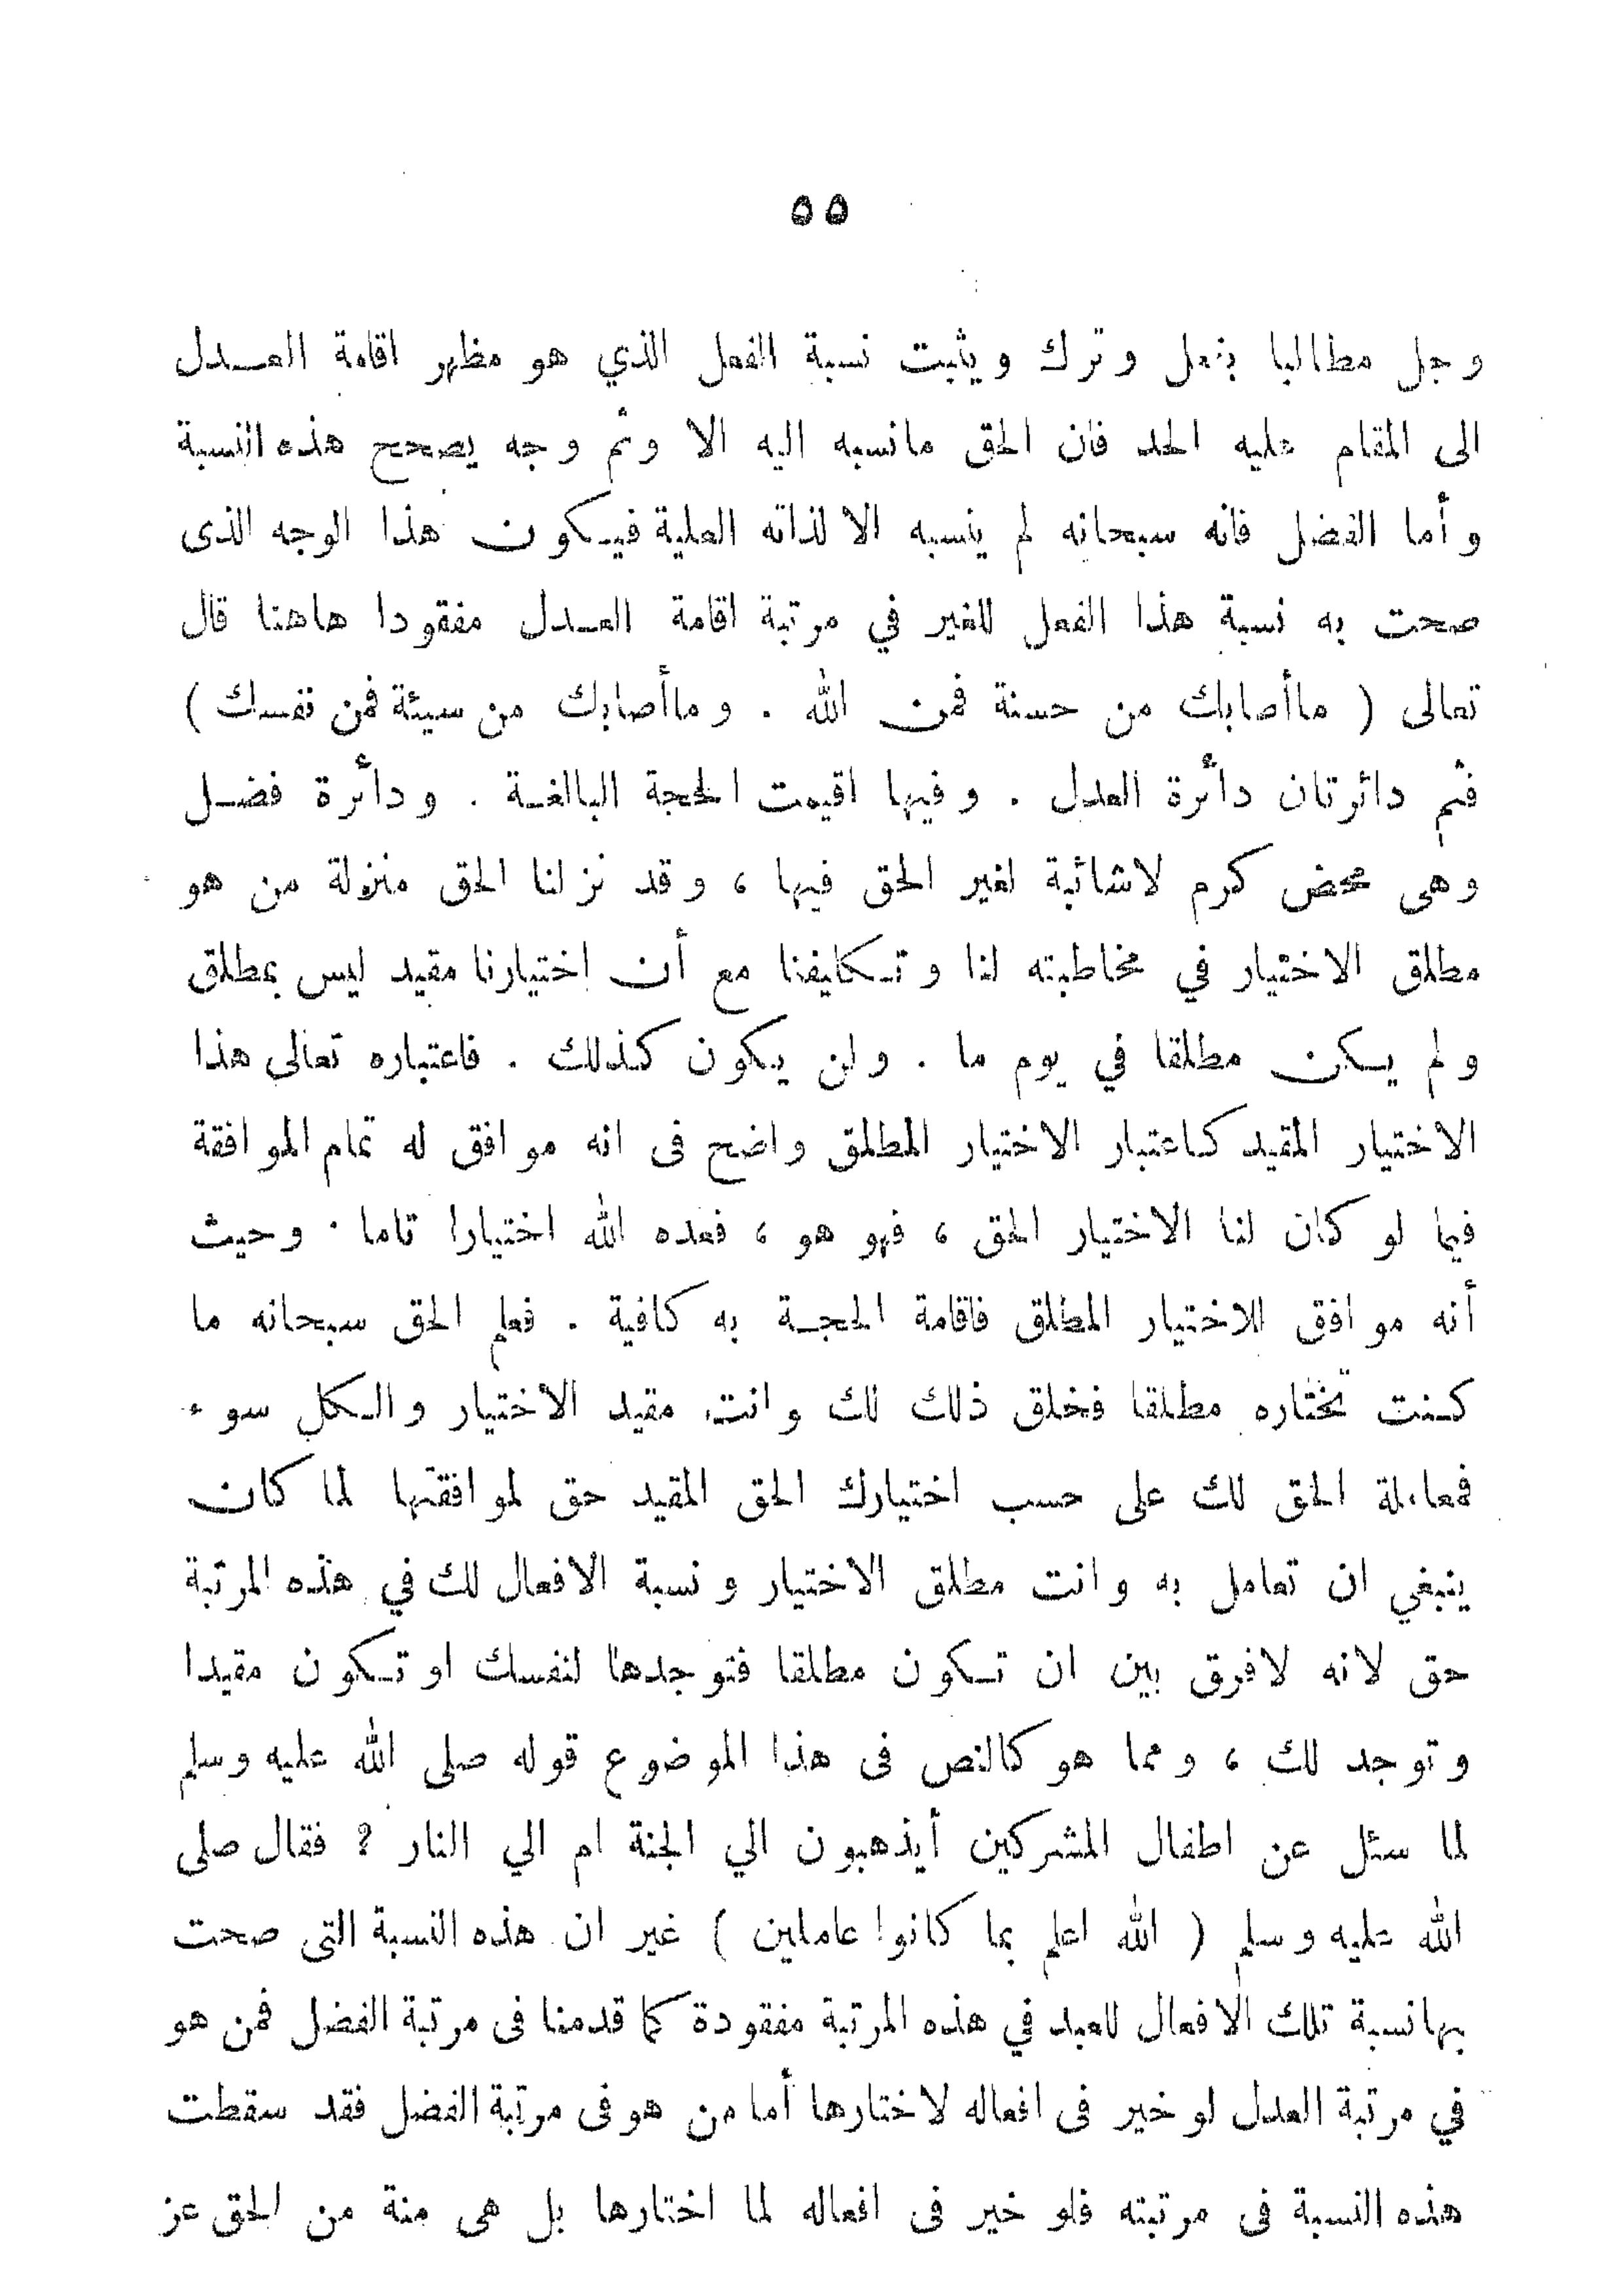 ٥٥
وجل مطالبا بفعل وترك ويثبت نسبة الفعل الذي هو مظهر اقامة العدل
الى المقام عليه الحد فان الحق مانسبه اليه الا وثم وجه يصحح هذه النسبة
وأما الفضل فانه سبحانه لم ينسبه الا لذاته العلية فيكون هذا الوجه الذى
صحت به نسبة هذا الفعل للغير في مرتبة اقامة العدل مفقودا هاهنا قال
تعالى ( ماأصابك من حسنة فمن الله . وماأصابك من سيئة فمن نفسك )
فثم دائرتان دائرة العدل . وفيها اقيمت الحجة البالغة . ودائرة فضل
وهى محض كرم لاشائبة لغير الحق فيها ، وقد نزلنا الحق منزلة من هو
مطلق الاختيار في مخاطبته لنا وتكليفنا مع أن اختيارنا مقيد ليس بمطلق
ولم يكن مطلقا في يوم ما . ولن يكون كذلك . فاعتباره تعالى هذا
الاختيار المقيد كاعتبار الاختيار المطلق واضح فى انه موافق له تمام الموافقة
فيما لو كان لنا الاختيار الحق ، فهو هو ، فعده الله اختيارا تاما . وحيث
أنه موافق للاختيار المطلق فاقامة الحجة به كافية . فعلم الحق سبحانه ما
كنت تختاره مطلقا فخلق ذلك لك وانت مقيد الاختيار والكل سوء
فمعاملة الحق لك على حسب اختيارك الحق المقيد حق لموافقتها لما كان
ينبغي ان تعامل به وانت مطلق الاختيار ونسبة الافعال لك في هذه المرتبة
حق لانه لافرق بين ان تكون مطلقا فتوجدها لنفسك او تكون مقيدا
وتوجد لك ، ومما هو كالنص فى هذا الموضوع قوله صلى الله عليه وسلم
لما سئل عن اطفال المشركين أيذهبون الي الجنة ام الي النار ؟ فقال صلى
الله عليه وسلم ( الله اعلم بما كانوا عاملين ) غير ان هذه النسبة التى صحت
بهانسبة تلك الافعال للعبد في هذه المرتبة مفقودة كما قدمنا فى مرتبة الفضل فمن هو
في مرتبة العدل لو خير فى افعاله لاختارها أما من هو فى مرتبة الفضل فقد سقطت
هذه النسبة فى مرتبته فلو خير فى افعاله لما اختارها بل هى منة من الحق عز